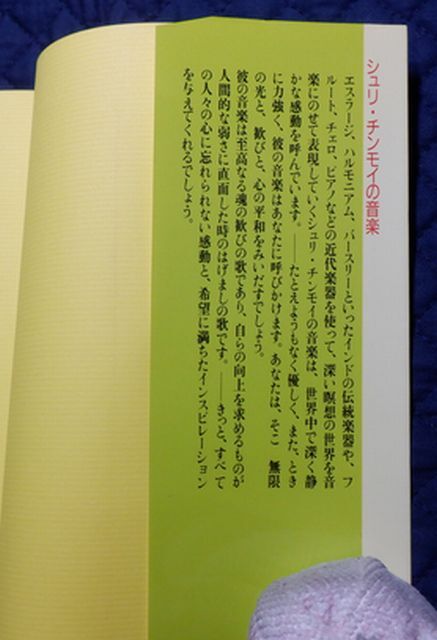 シュリ・チンモイの音楽
エスラージ、ハルモニアム、バースリーといったインドの伝統楽器や、フ
ルート、チェロ、ピアノなどの近代楽器を使って、深い瞑想の世界を音
楽にのせて表現していくシュリ・チンモイの音楽は、世界中で深く静
かな感動を呼んでいます。——たとえようもなく優しく、また、とき
に力強く、彼の音楽はあなたに呼びかけます。あなたは、そこ 無限
の光と、歓びと、心の平和をみいだすでしょう。
彼の音楽は至高なる魂の歓びの歌であり、自らの向上を求めるものが
人間的な弱さに直面した時のはげましの歌です。——きっと、すべて
の人々の心に忘れられない感動と、希望に満ちたインスピレーション
を与えてくれるでしょう。